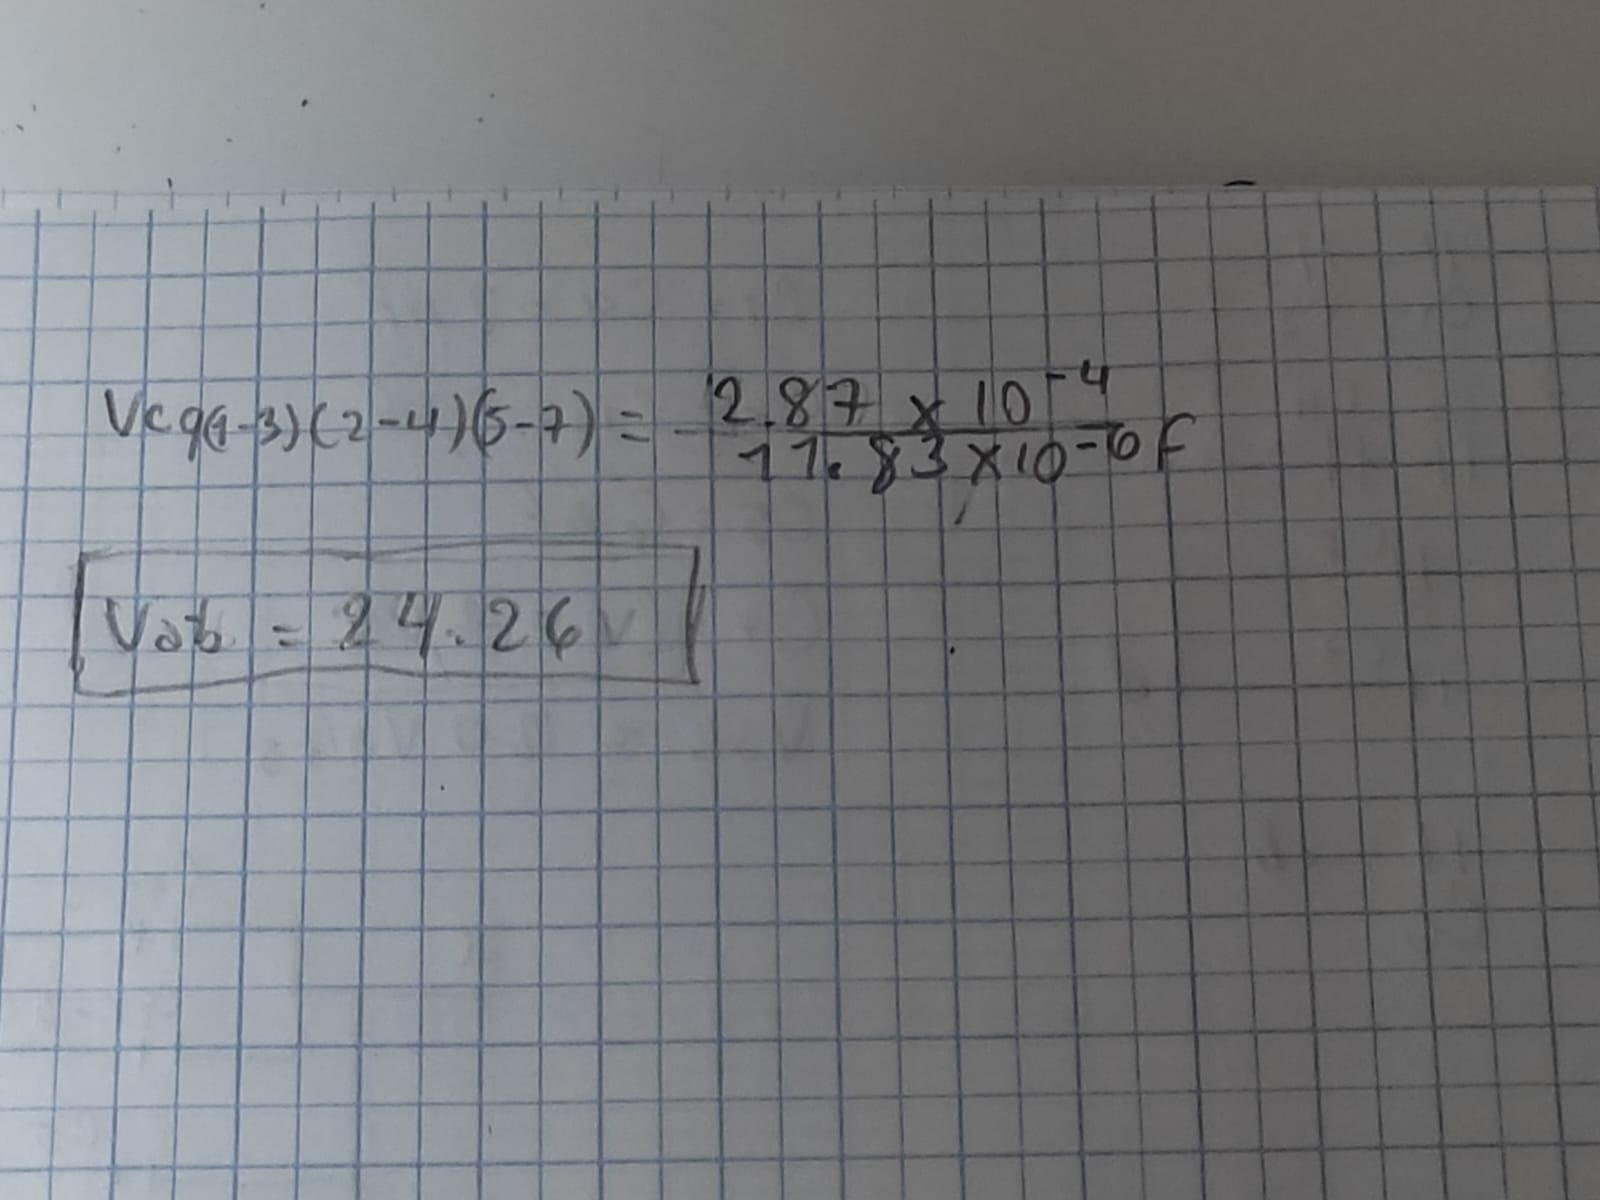 Vcq(1-3)(2-4)(5-7) = 2.87 x 10^-4
11.83 x 10^-6 F
Vab = 24.26 V